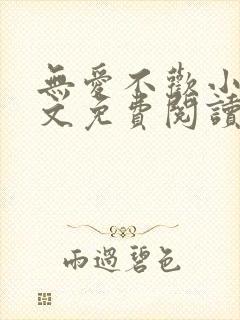 無愛不歡小
文免費閱讀
雨過碧色